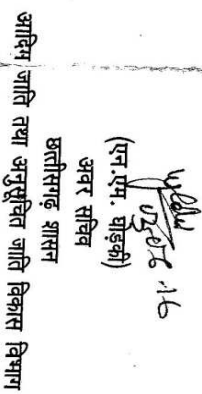 03/02/16
(एन.एम. घोड़की)
अवर सचिव
छत्तीसगढ़ शासन
आदिम जाति तथा अनुसूचित जाति विकास विभाग